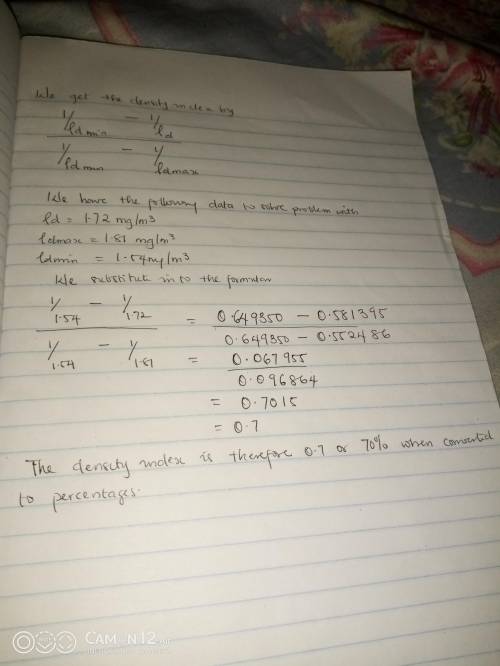 We get the density index by
1/ℓdmin − 1/ℓd
1/ℓdmin − 1/ℓdmax
We have the following data to solve problem with
ℓd = 1.72 mg/m³
ℓdmax = 1.81 mg/m³
ℓdmin = 1.54mg/m³
We substitute in to the formular
1/1.54 − 1/1.72 = 0.649350 − 0.581395
1/1.54 − 1/1.81 0.649350 − 0.552486
= 0.067955
0.096864
= 0.7015
= 0.7
The density index is therefore 0.7 or 70% when converted
to percentages.
CAMON 12